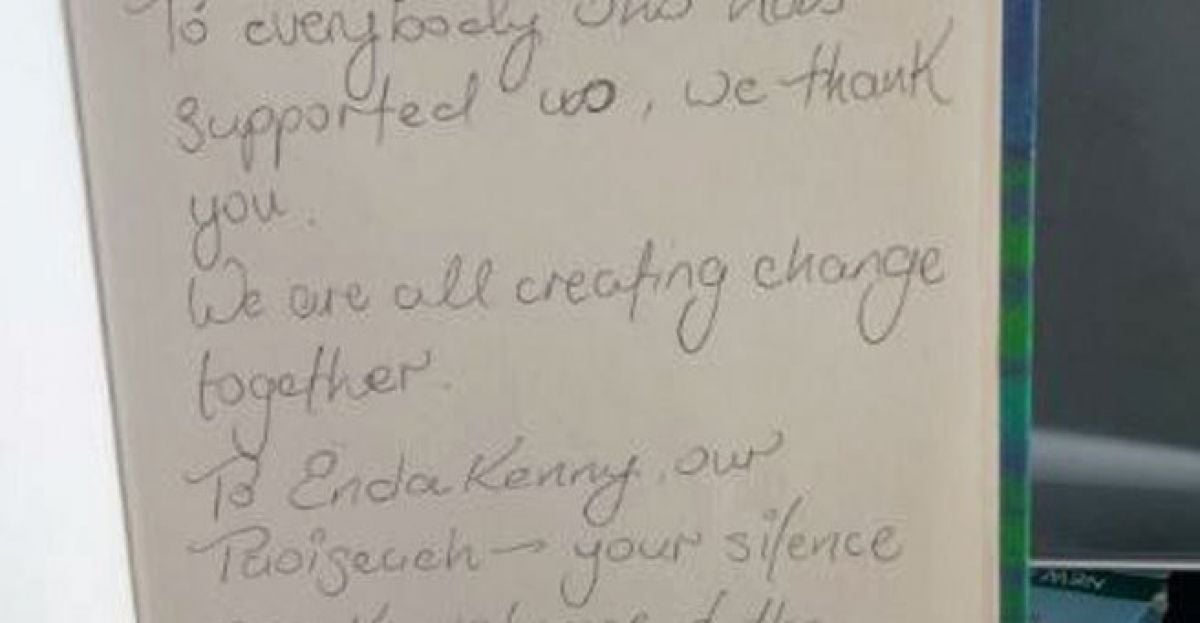 To everybody who has
supported us, we thank
you.
We are all creating change
together.
To Enda Kenny, our
Taoiseach → your silence
the
MRN